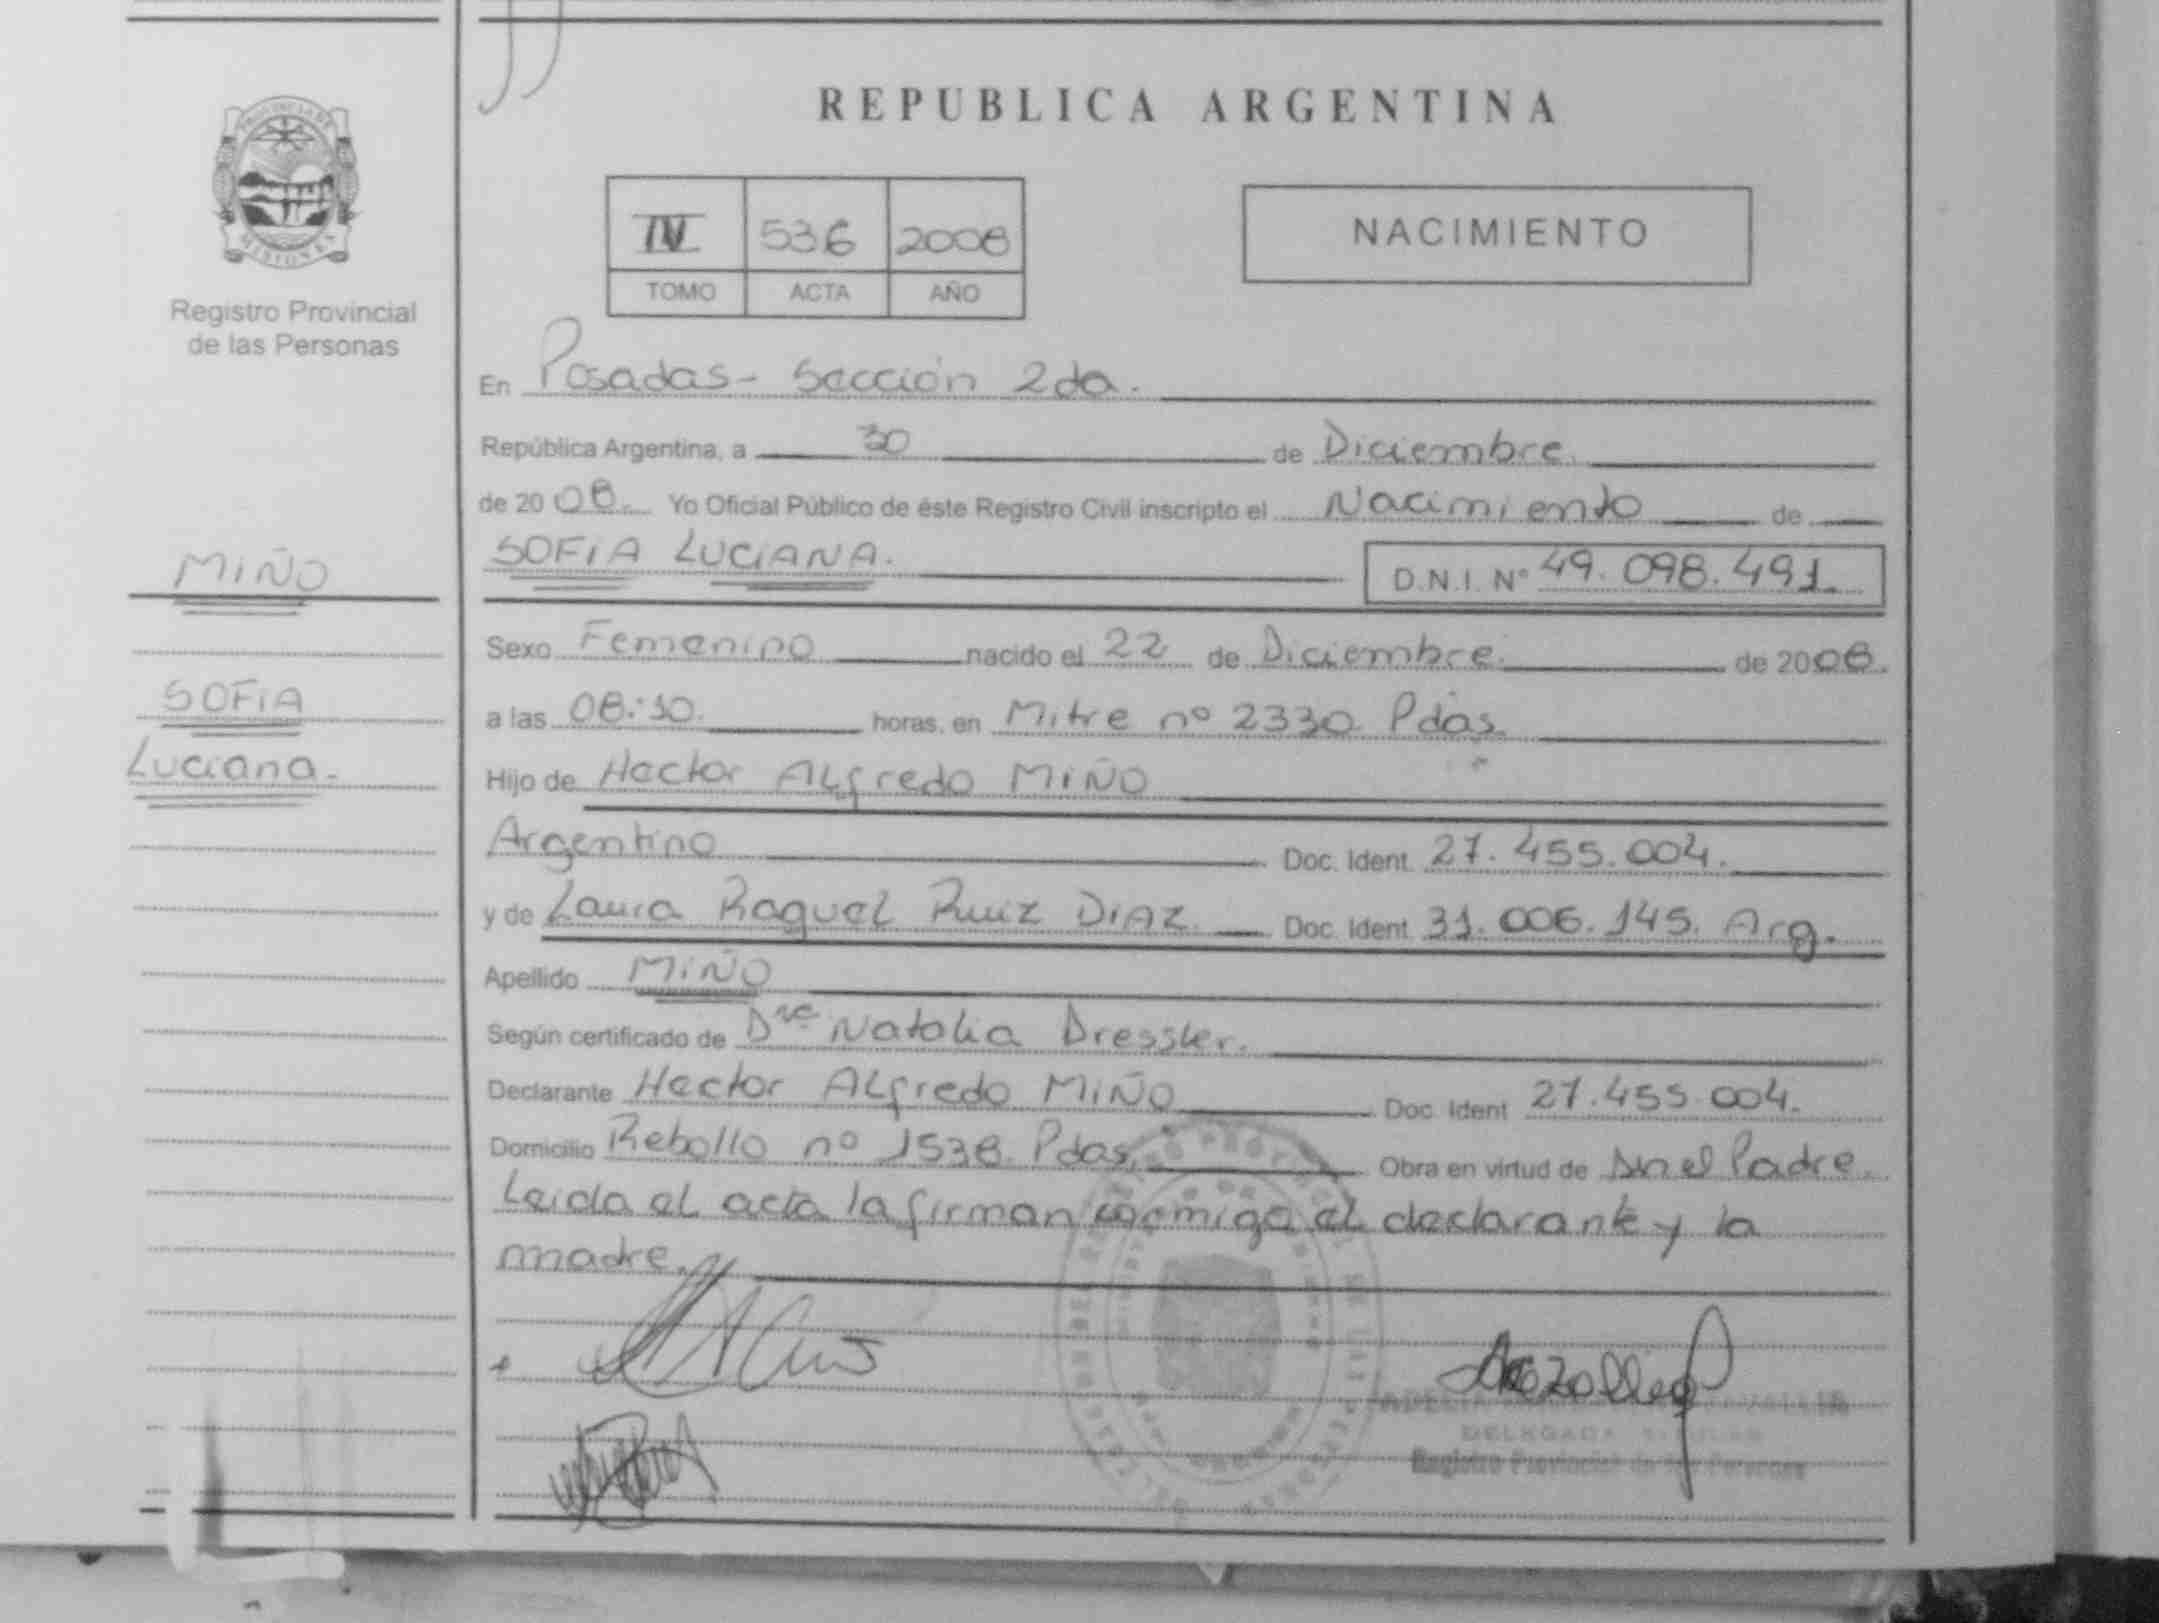 REPUBLICA ARGENTINA
PROVINCIA DE
MISIONES
Registro Provincial
de las Personas
IV 536 2008
TOMO ACTA AÑO
NACIMIENTO
En Posadas - Sección 2da.
República Argentina, a 30 de Diciembre.
de 20 08. Yo Oficial Público de éste Registro Civil inscripto el Nacimiento de
SOFIA LUCIANA. D.N.I. Nº 49.098.491.
MIÑO
Sexo Femenino nacido el 22 de Diciembre. de 2008.
SOFIA
a las 08:30. horas, en Mitre nº 2330. Pdas.
Luciana.
Hijo de Hector Alfredo MIÑO
Argentino Doc. Ident. 27.455.004.
y de Laura Raquel Ruiz DIAZ. Doc. Ident. 31.006.145. Arg.
Apellido MIÑO
Según certificado de Dra Natalia Dressler.
Declarante Hector Alfredo MIÑO Doc. Ident 27.455.004.
Domicilio Rebollo nº 1538. Pdas. Obra en virtud de el Padre.
Leida el acta la firman conmigo el declarante y la
madre.
DELEGADA
Registro Provincial de las Personas